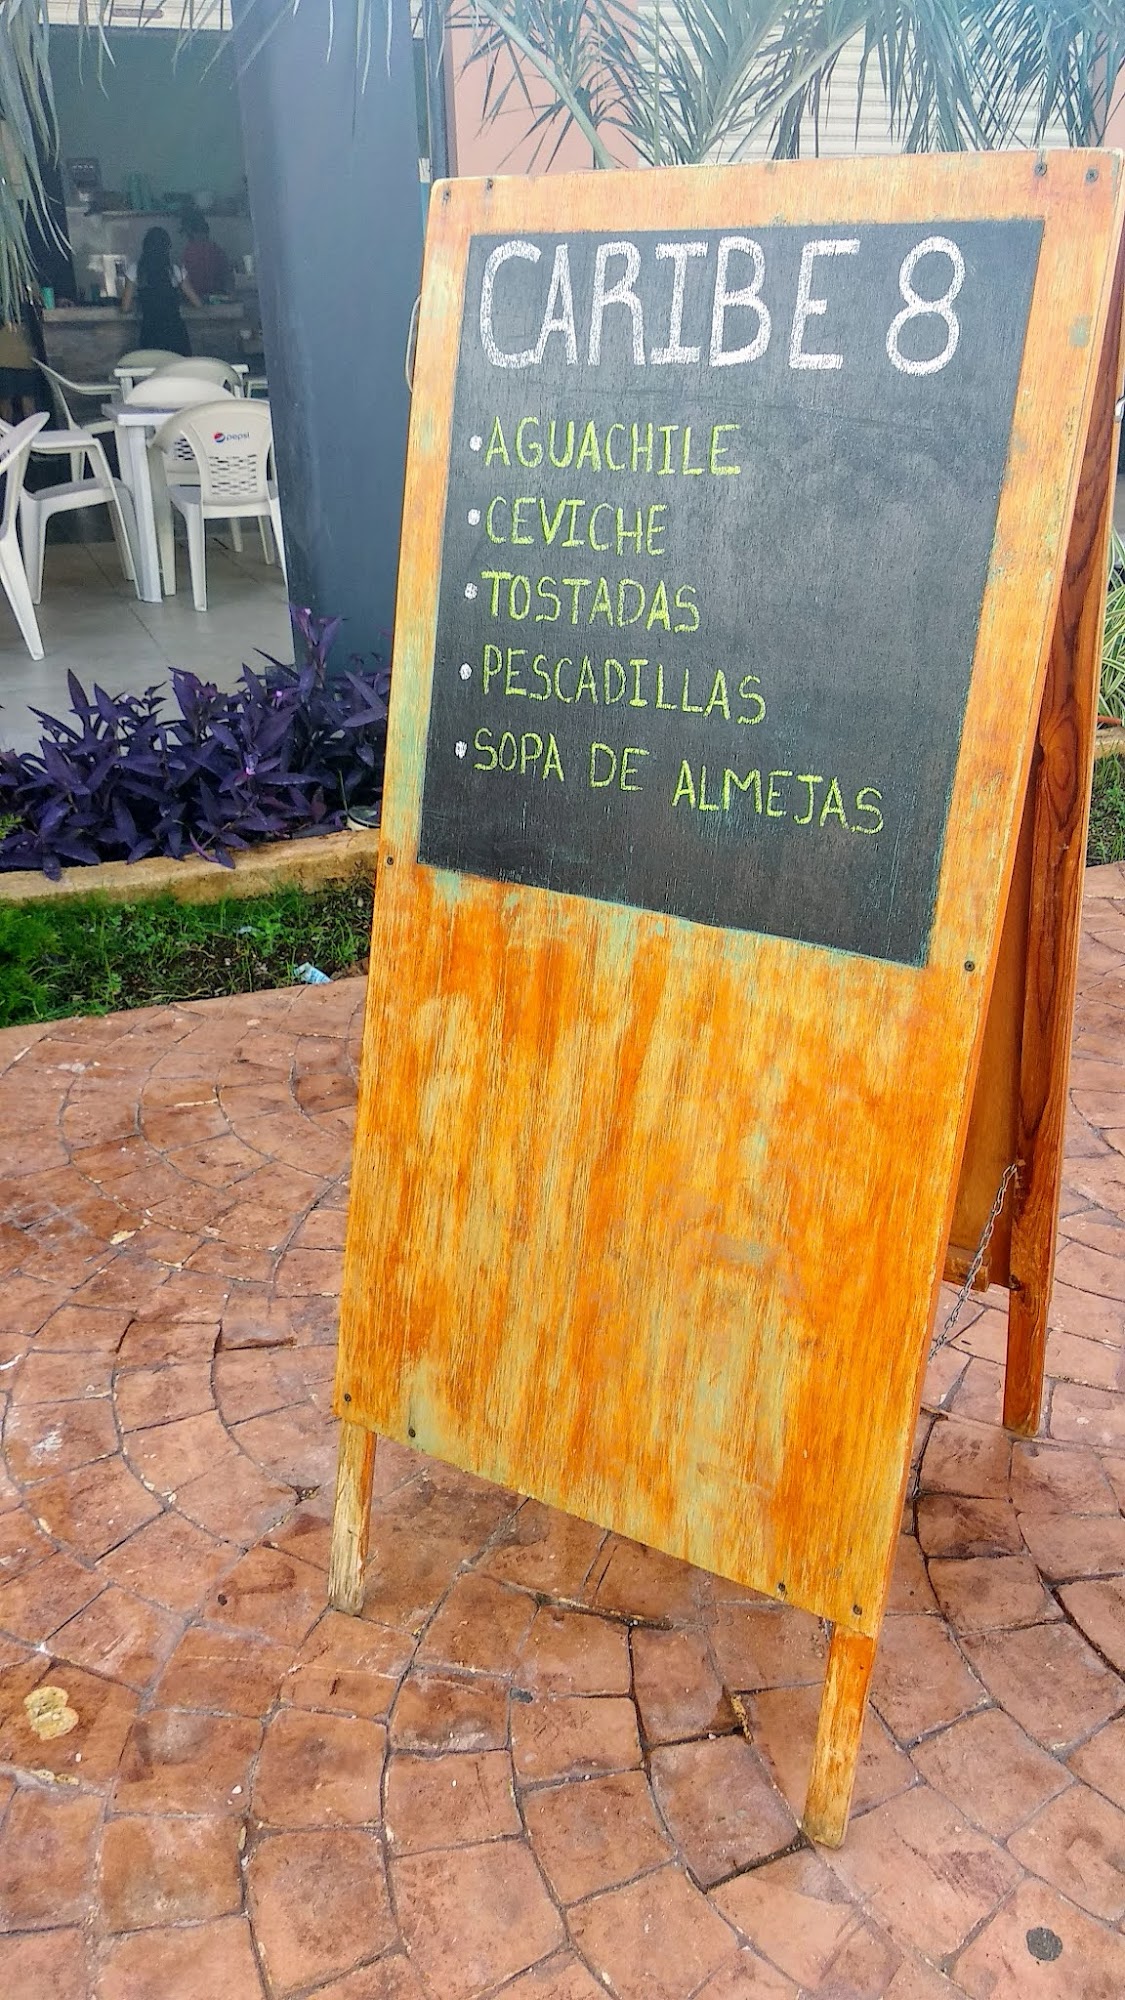 CARIBE 8
• AGUACHILE
• CEVICHE
• TOSTADAS
• PESCADILLAS
• SOPA DE ALMEJAS
pepsi